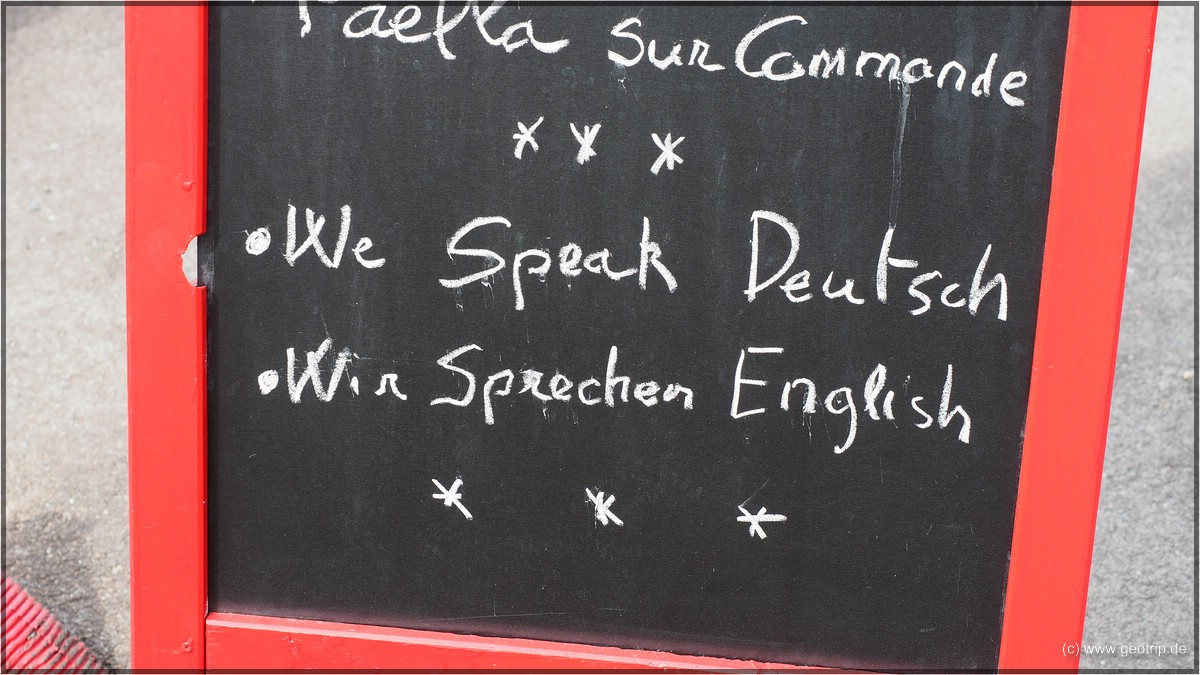 Paella sur Commande
* * *
• We Speak Deutsch
• Wir Sprechen English
* * *
(c) www.geotrip.de